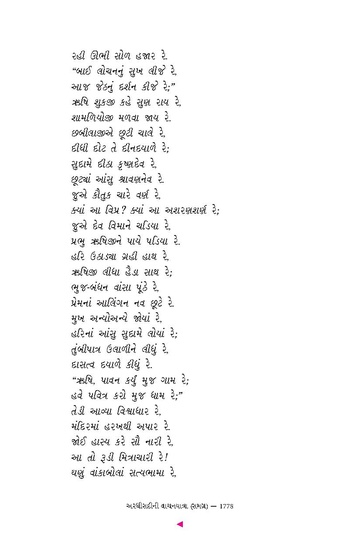 રહી ઊભી સોળ હજાર રે.
“બાઈ લોચનનું સુખ લીજે રે,
આજ જેઠનું દર્શન કીજે રે;”
ઋષિ શુકજી કહે સુણ રાય રે.
શામળિયોજી મળવા જાય રે.
છબીલાજીએ છૂટી ચાલે રે.
દીધી દોટ તે દીનદયાળે રે;
સુદામે દીઠા કૃષ્ણદેવ રે,
છૂટ્યાં આંસુ શ્રાવણનેવ રે.
જુએ કૌતુક ચારે વર્ણ રે.
ક્યાં આ વિપ્ર? ક્યાં આ અશરણશર્ણ રે;
જુએ દેવ વિમાને ચડિયા રે.
પ્રભુ ઋષિજીને પાયે પડિયા રે.
હરિ ઉઠાડ્યા ગ્રહી હાથ રે.
ઋષિજી લીધા હૈડા સાથ રે;
ભુજ-બંધન વાંસા પૂંઠે રે.
પ્રેમનાં આલિંગન નવ છૂટે રે.
મુખ અન્યોઅન્યે જોયાં રે.
હરિનાં આંસુ સુદામે લોયાં રે;
તુંબીપાત્ર ઉલાળીને લીધું રે.
દાસત્વ દયાળે કીધું રે.
“ઋષિ, પાવન કર્યું મુજ ગામ રે;
હવે પવિત્ર કરો મુજ ધામ રે;”
તેડી આવ્યા વિશ્વાધાર રે.
મંદિરમાં હરખથી અપાર રે.
જોઈ હાસ્ય કરે સૌ નારી રે.
આ તો રૂડી મિત્રાચારી રે!
ઘણું વાંકાબોલાં સત્યભામા રે,
અરધીસદીની વાચનયાત્રા (સમગ્ર) — 1778